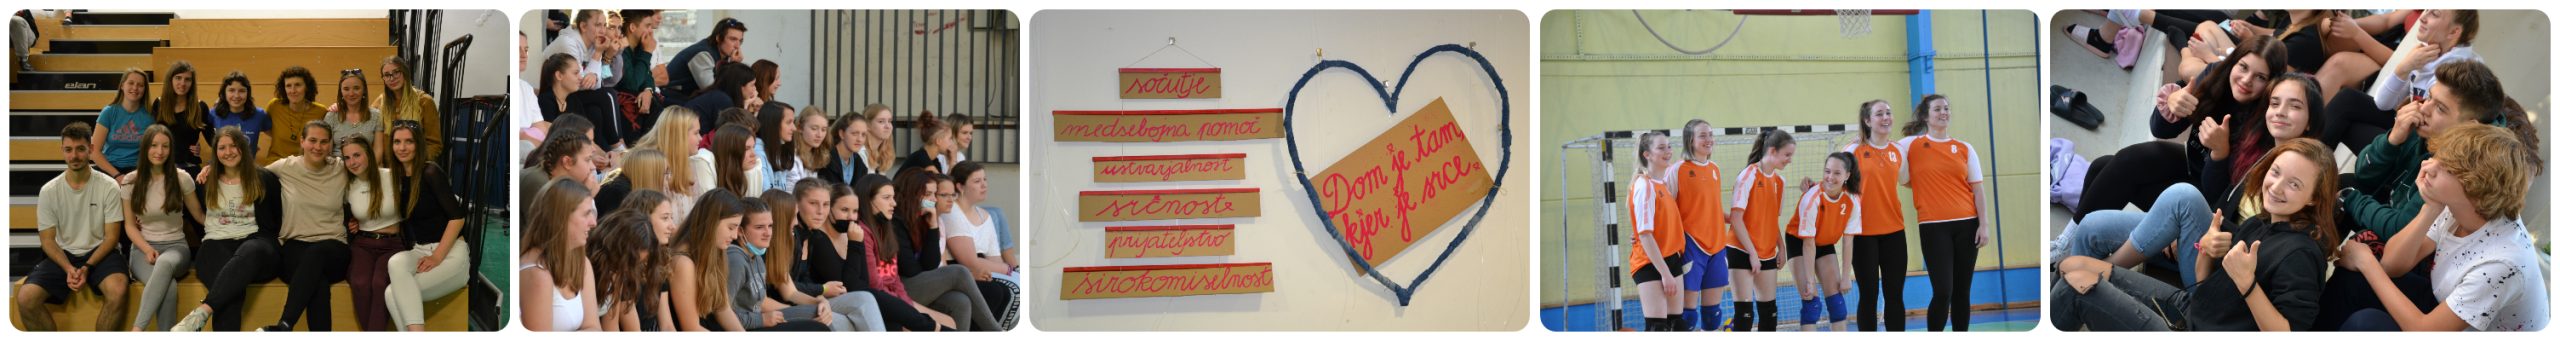 elan
adidas
sočutje
medsebojna pomoč
ustvarjalnost
srčnost
prijateljstvo
širokomiselnost
Dom je tam,
kjer je srce.
2
13
8